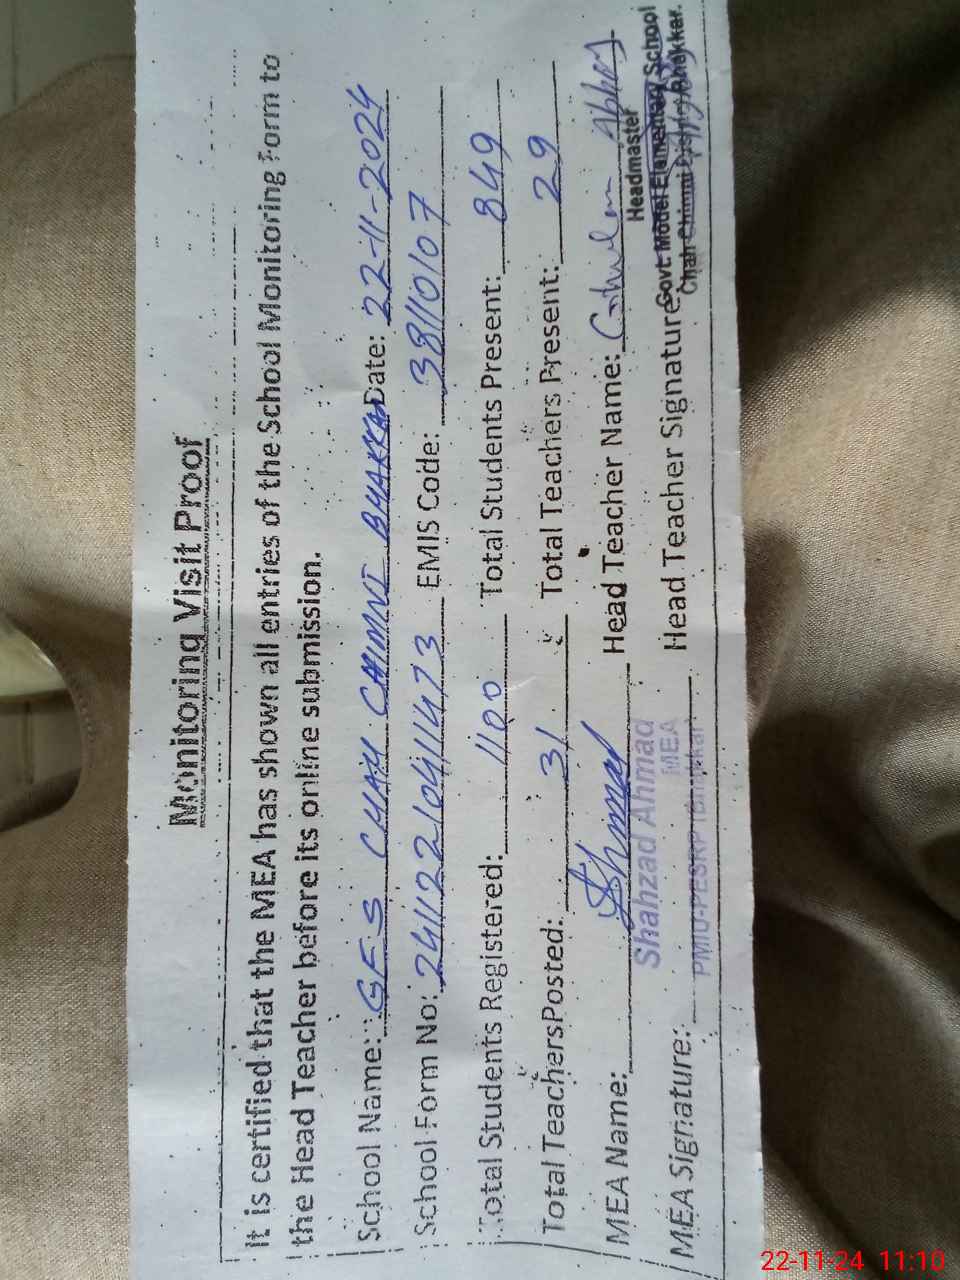 Monitoring Visit Proof
It is certified that the MEA has shown all entries of the School Monitoring Form to
the Head Teacher before its online submission.
School Name: GES CHAH CHIMNI BHAKKAR Date: 22-11-2024
School Form No: 241122104111473 EMIS Code: 38110107
Total Students Registered: 1100 Total Students Present: 849
Total TeachersPosted: 31 Total Teachers Present: 29
MEA Name: Head Teacher Name: Ghulam Abbas
Shahzad Ahmad
MEA
PMIU-PESRP Bhakkar
Headmaster
Govt. Model Elementary School
Chah Chimni District Bhakkar.
MEA Signature: Head Teacher Signature:
22-11-24 11:10